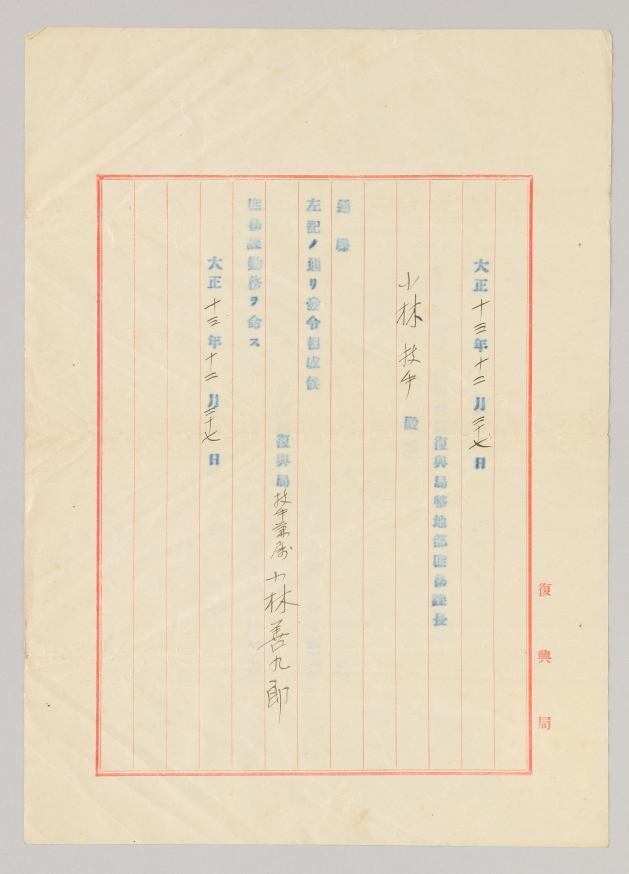 大正十三年十二月二十七日
復興局整地部庶務課長
小林 技手 殿
通牒
左記ノ通リ發令相成候
復興局技手兼属 小林善九郎
庶務課勤務ヲ命ス
大正十三年十二月二十七日
復興局